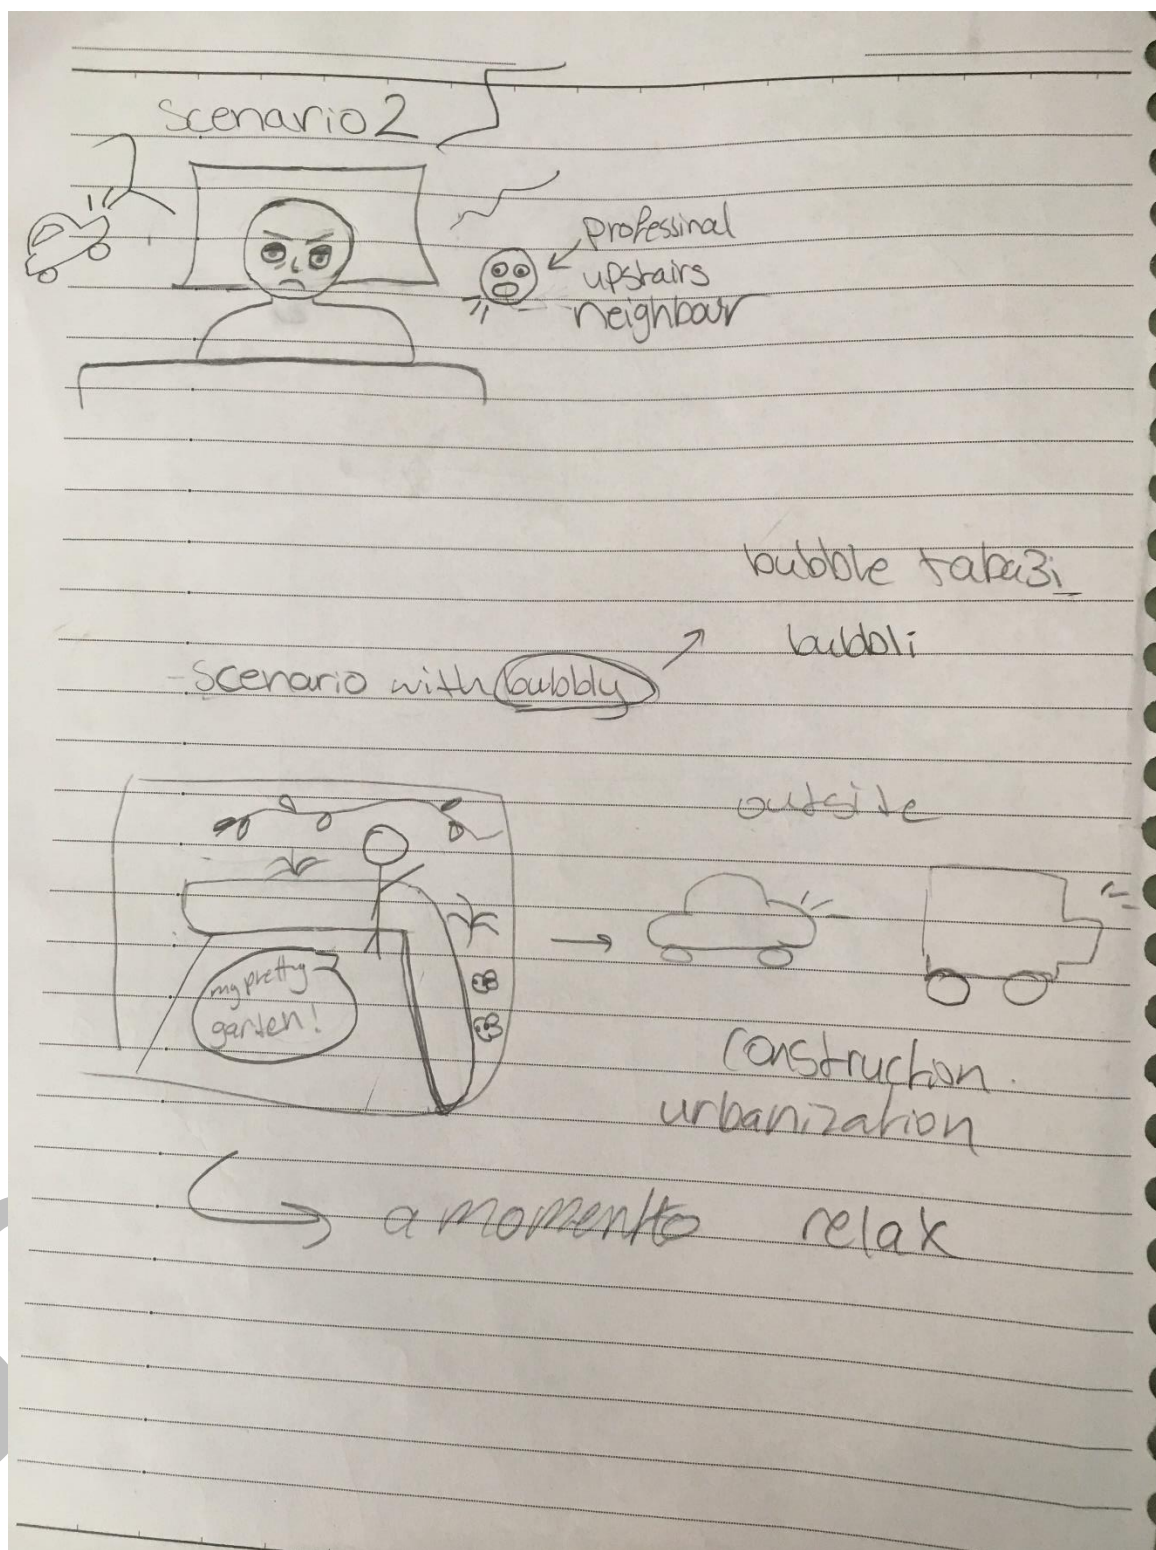 scenario 2
professinal
upstairs
neighbour
bubble taba3i
bubbli
-scenario with bubbly
outside
my pretty
garden!
construction.
urbanization
a moment to relax